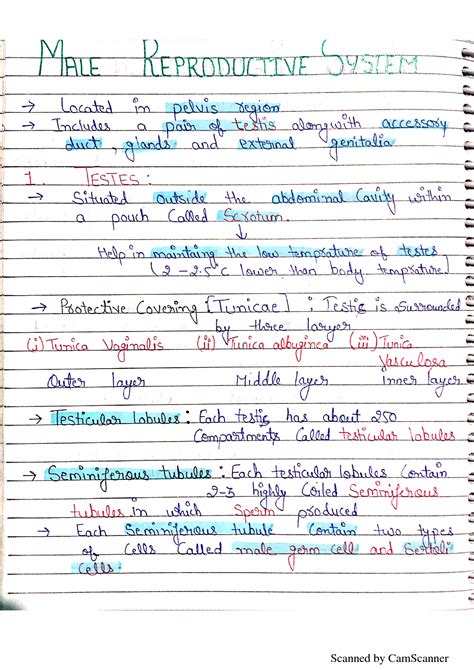 MALE REPRODUCTIVE SYSTEM
→ Located in pelvis region
→ Includes a pair of testis alongwith accessory
duct, glands and external genitalia
1. TESTES :
→ Situated outside the abdominal Cavity within
a pouch Called Scrotum.
↓
Help in maintaing the low temprature of testes
(2-2.5°C lower than body temprature)
→ Protective Covering [Tunicae] : Testis is surrounded
by three laryer
(i) Tunica Vaginalis (ii) Tunica albuginea (iii) Tunica
Vasculosa
Outer layer Middle layer inner layer
→ Testicular lobules : Each testis has about 250
Compartments Called testicular lobules
→ Seminiferous tubules : Each testicular lobules Contain
2-3 highly Coiled Seminiferous
tubules in which Sperm produced
→ Each Seminiferous tubule Contain two types
of Cells Called male germ cell and Sertoli
Cells.
Scanned by CamScanner